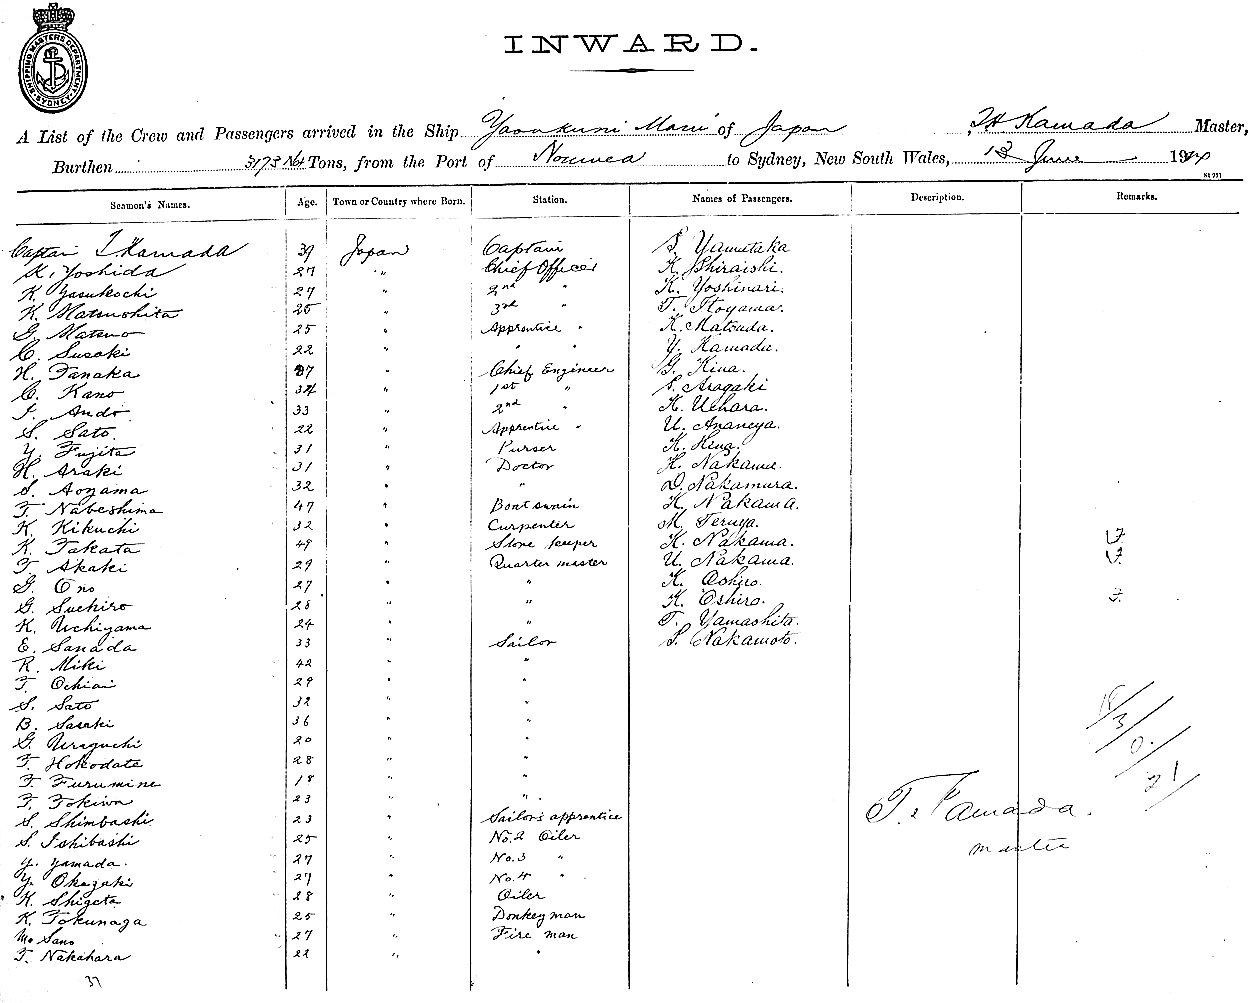 SHIPPING MASTERS DEPARTMENT SYDNEY
INWARD.
A List of the Crew and Passengers arrived in the Ship Yasukuni Maru of Japan Kamada Master,
Burthen 3173 Net Tons, from the Port of Noumea to Sydney, New South Wales, 13 June 19
Seamen's Names. Age. Town or Country where Born. Station. Names of Passengers. Description. Remarks.
Captain T Kamada 39 Japan Captain S. Yamataka
K. Yoshida 27 " Chief Officer K. Shiraishi.
K. Yasukochi 27 " 2nd " K. Yoshinari.
K. Matsushita 25 " 3rd " T. Itoyama.
G. Matsuo 25 " Apprentice " K. Matsuda.
C. Susaki 22 " " " Y. Kamada.
H. Tanaka 37 " Chief Engineer G. Kina.
C. Kano 34 " 1st " S. Aragaki
S. Ando 33 " 2nd " K. Uehara.
S. Sato. 22 " Apprentice " U. Ananeya.
Y. Fujita 31 " Purser K. Hina.
H. Araki 31 " Doctor H. Nakama.
S. Aoyama 32 " " D. Nakamura.
T. Nabeshima 47 " Boatswain K. Nakama.
K. Kikuchi 32 " Carpenter M. Teruya.
K. Takata 49 " Store keeper K. Nakama. F.
T. Akaki 29 " Quarter master U. Nakama. F.
G. Ono 27 " " K. Oshiro.
G. Suehiro 28 " " K. Oshiro. F.
K. Uchiyama 24 " " T. Yamashita.
E. Sanada 33 " Sailor S. Nakamoto.
R. Miki 42 " "
T. Ochiai 29 " "
S. Sato 32 " "
B. Sasaki 36 " "
G. Uraguchi 20 " "
T. Hokodate 28 " "
T. Furumine 18 " "
T. Tokiwa 23 " "
S. Shimbashi 23 " Sailor's apprentice
S. Ishibashi 25 " No. 2 Oiler
Y. Yamada. 27 " No. 3 "
Y. Okazaki 27 " No. 4 "
K. Shigeta 28 " Oiler
K. Tokunaga 25 " Donkey man
M. Sano 27 " Fire man
T. Nakahara 22 " "
37
18/
3/
0./
21/
T. Kamada.
master